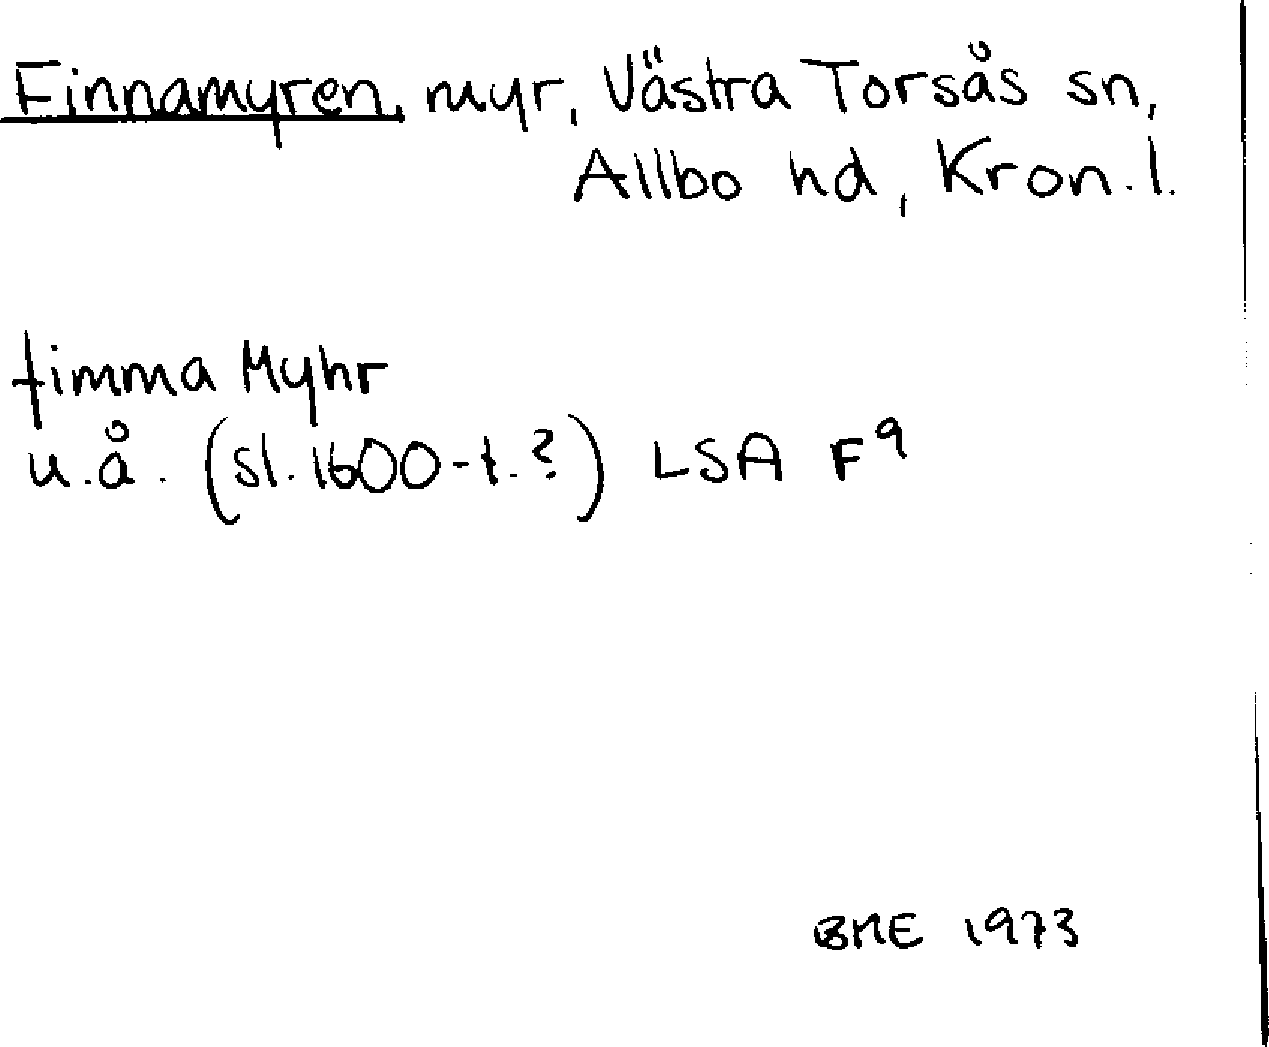 Finnamyren, myr, Västra Torsås sn,
Allbo hd, Kron. l.
fimma Myhr
u.å. (sl. 1600-t.?) LSA F9
BME 1973